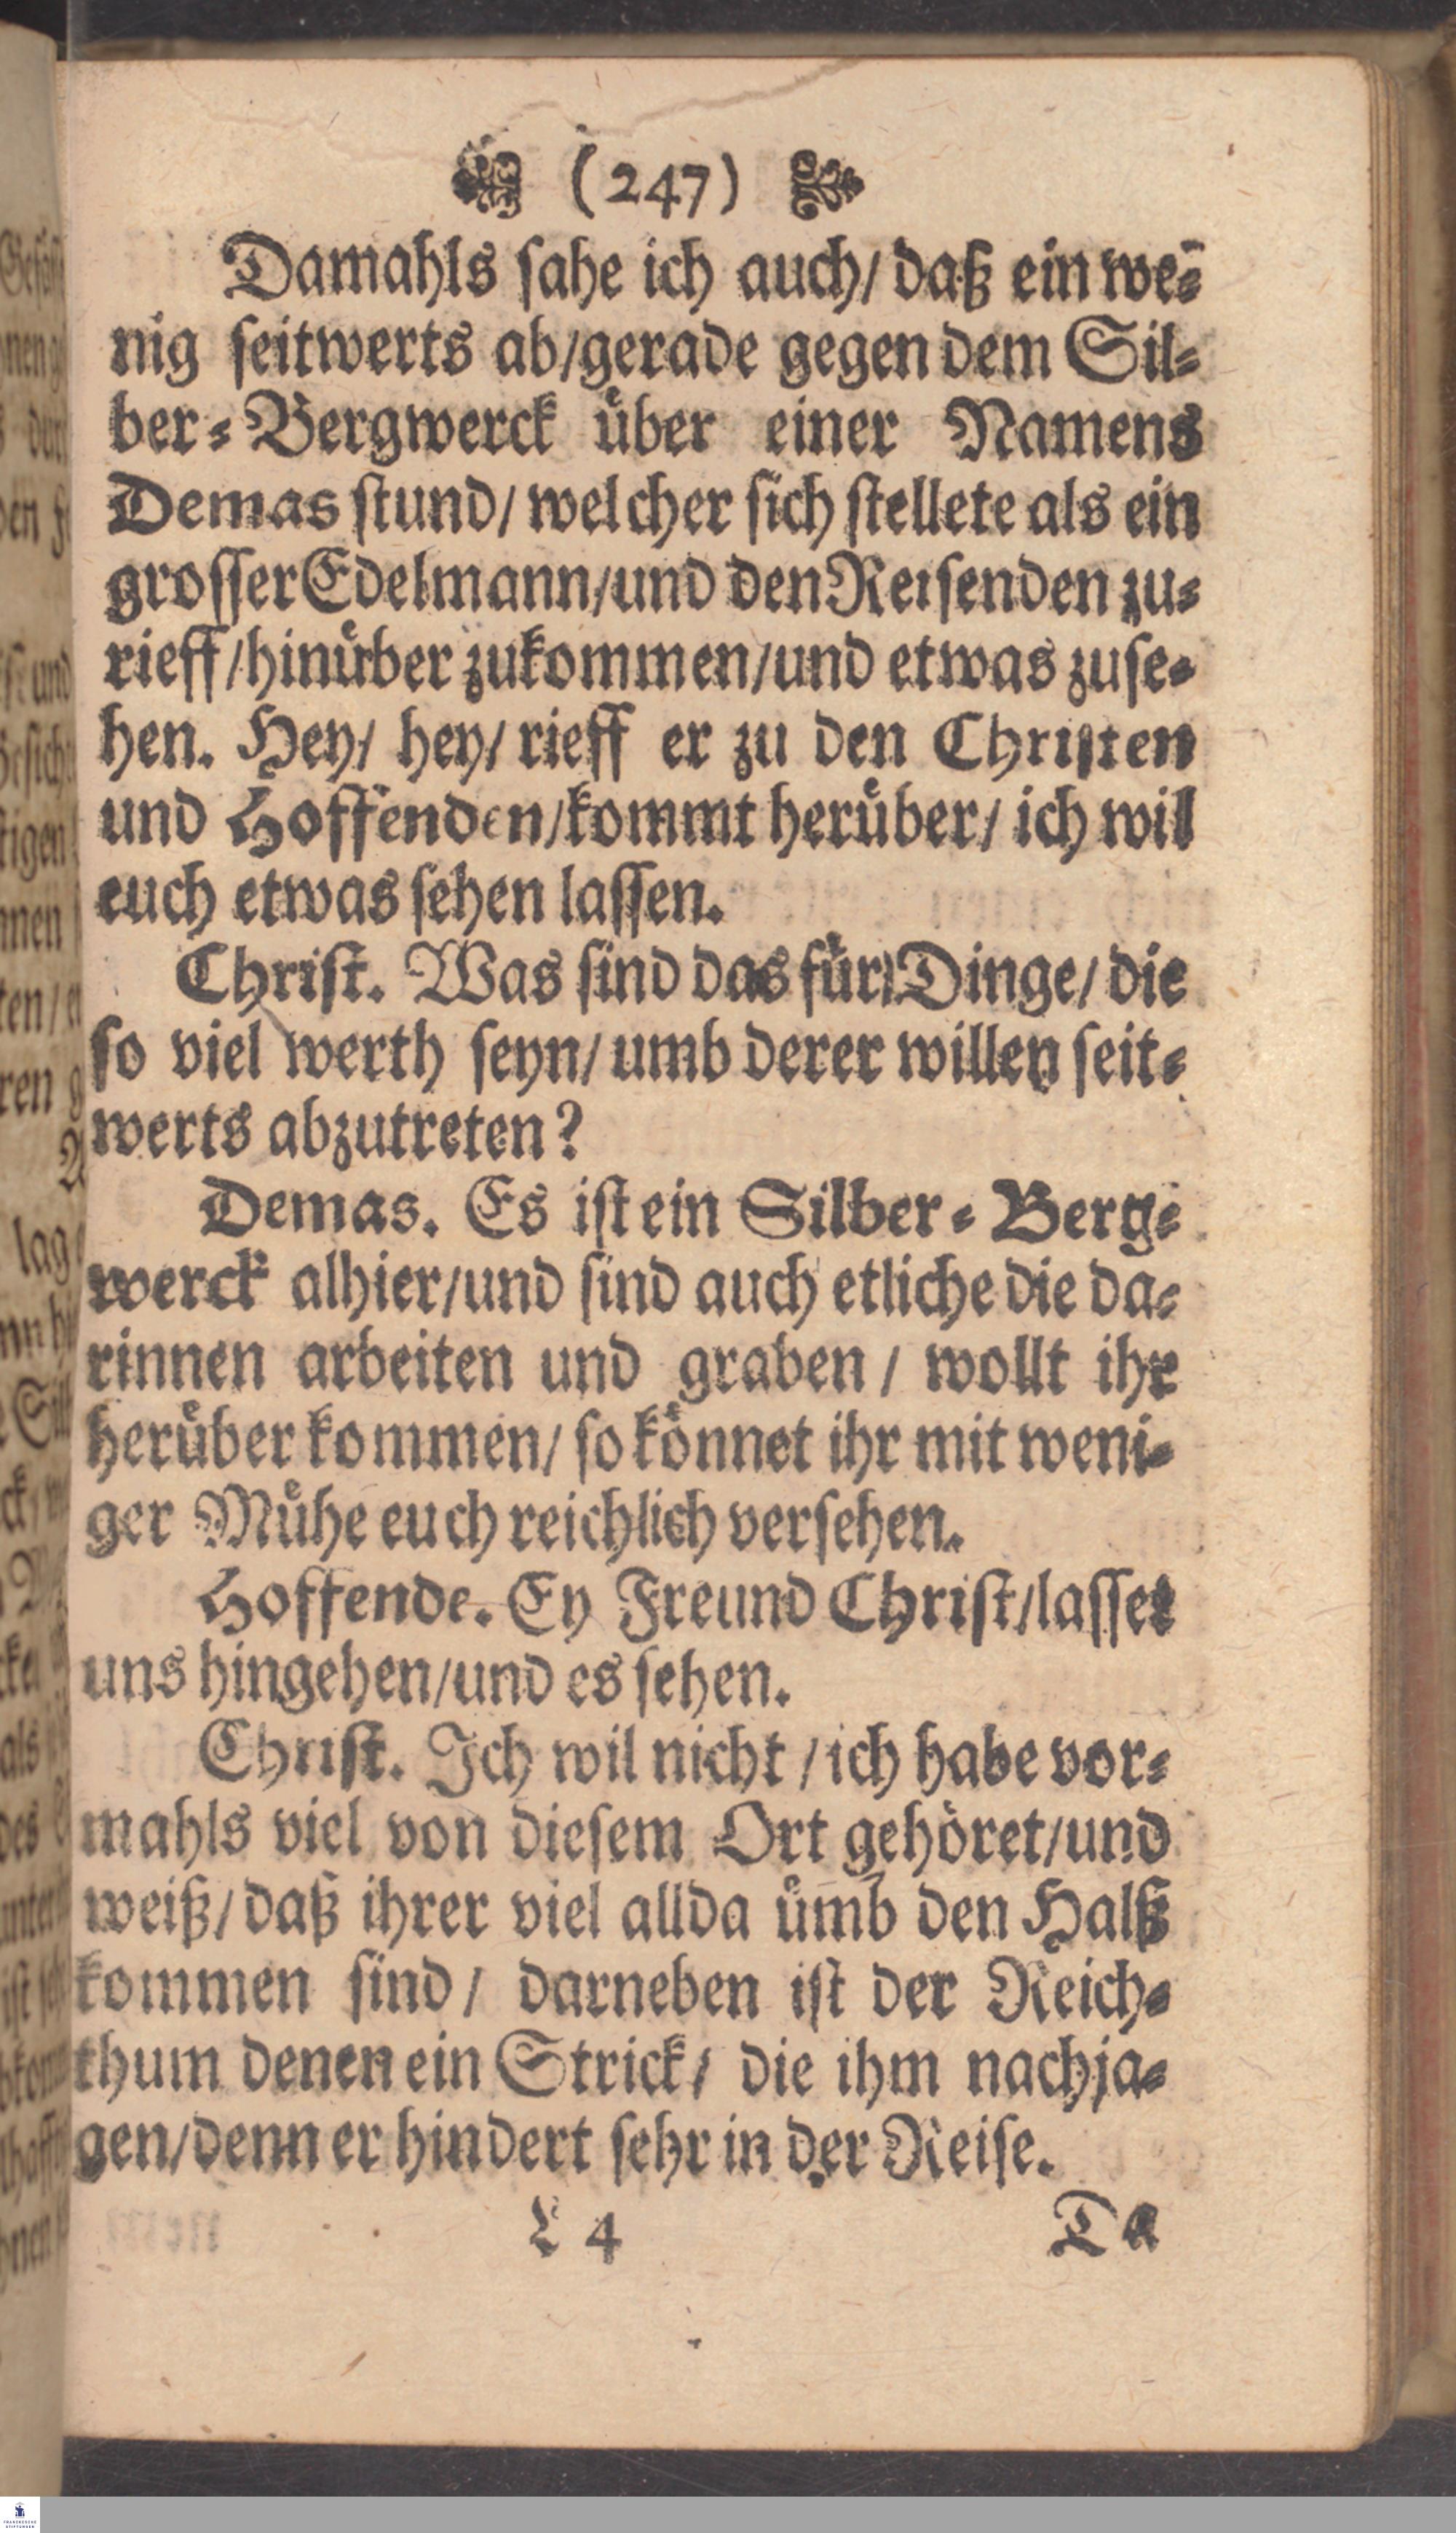 (247)
Damahls sahe ich auch/ daß ein we⸗
nig seitwerts ab/gerade gegen dem Sil⸗
ber⸗Bergwerck uͤber einer Namens
Demas stund/ welcher sich stellete als ein
grosser Edelmann/und den Reisenden zu⸗
rieff/hinuͤber zukommen/und etwas zuse⸗
hen. Hey/ hey/ rieff er zu den Christen
und Hoffenden/kommt heruͤber/ ich wil
euch etwas sehen lassen.
Christ. Was sind das fuͤr Dinge/ die
so viel werth seyn/ umb derer willen seit⸗
werts abzutreten?
Demas. Es ist ein Silber⸗Berg⸗
werck alhier/und sind auch etliche die da⸗
rinnen arbeiten und graben/ wollt ihr
heruͤber kommen/ so koͤnnet ihr mit weni⸗
ger Muͤhe euch reichlich versehen.
Hoffende. Ey Freund Christ/lasset
uns hingehen/und es sehen.
Christ. Ich wil nicht/ich habe vor⸗
mahls viel von diesem Ort gehoͤret/und
weiß/daß ihrer viel allda uͤmb den Halß
kommen sind/ darneben ist der Reich⸗
thum denen ein Strick/ die ihm nachja⸗
gen/denn er hindert sehr in der Reise.
L 4 Da